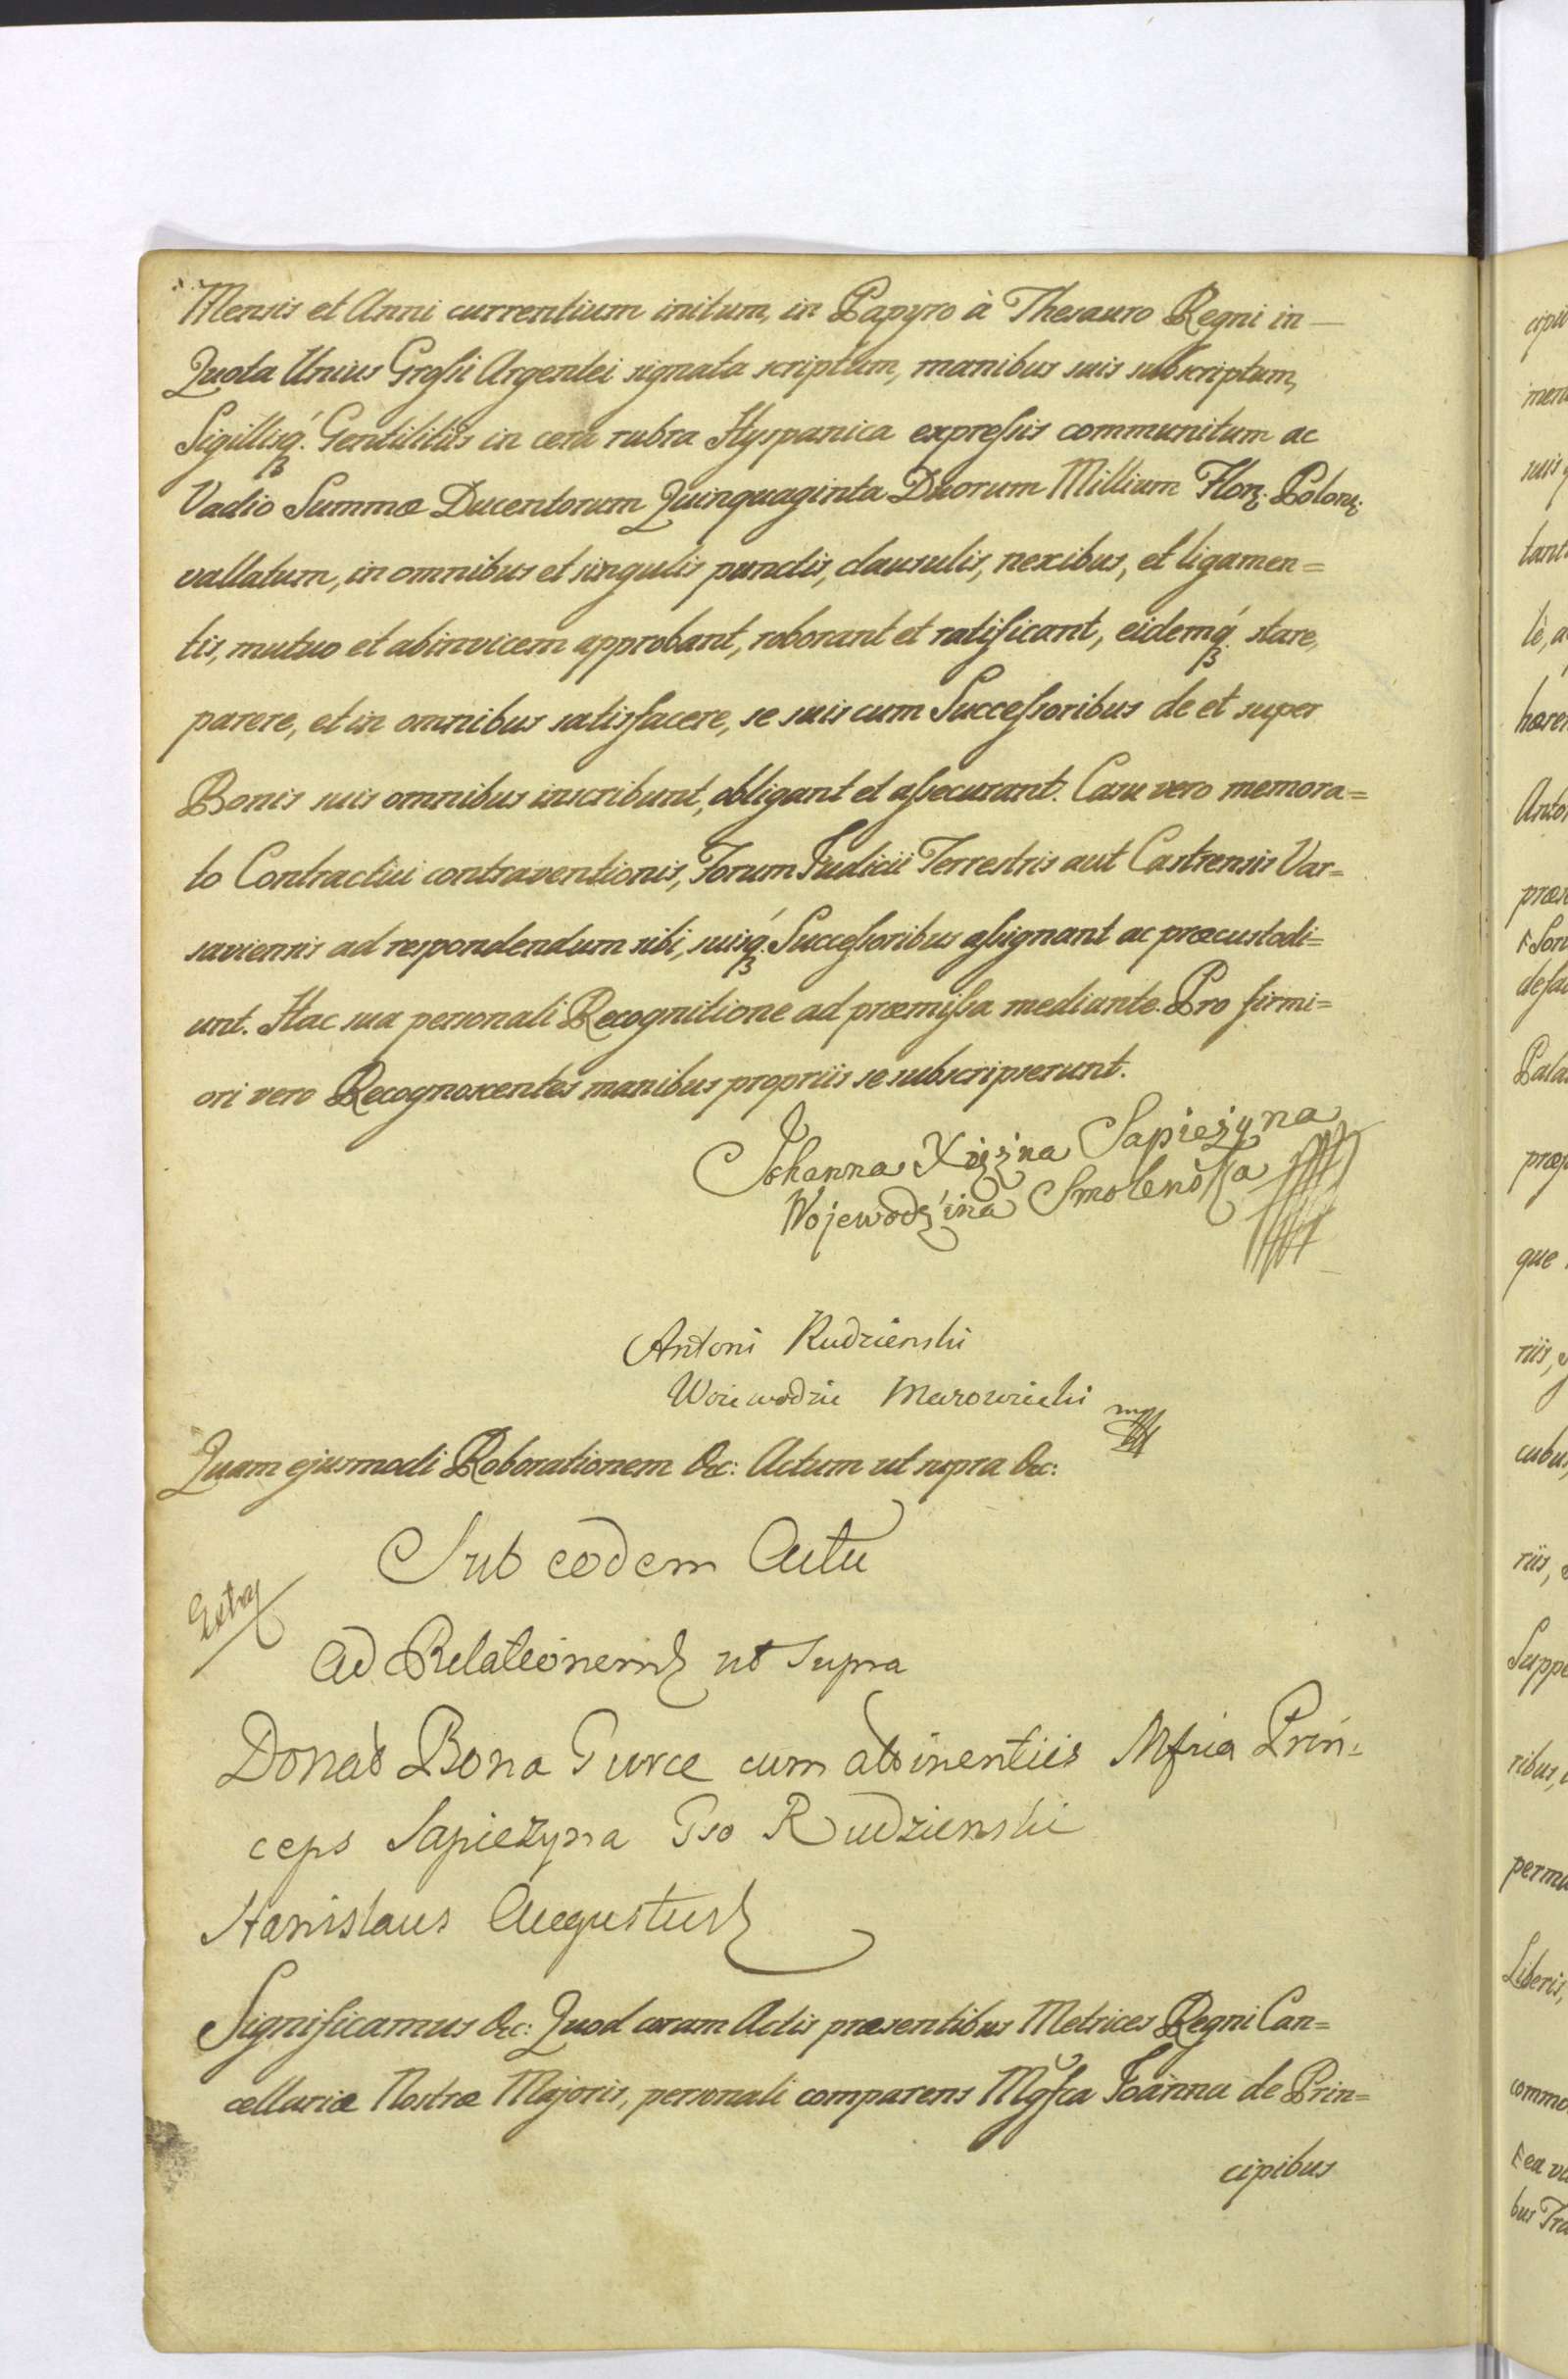 Mensis et Anni currentium initum, in Papyro à Thesauro Regni in
Quota Unius Grossi Argentei signata scriptum, manibus suis subscriptum,
Sigillisq́ꝫ Gentilitiis in cera rubra Hyspanica expressis communitum ac
Vadio Summæ Ducentorum Quinquaginta Duorum Millium Flor. Polon.
vallatum, in omnibus et singulis punctis, clausulis, nexibus, et ligamen=
tis, mutuo et abinvicem approbant, roborant et ratificant, eidemq́ꝫ stare,
parere, et in omnibus satisfacere, se suis cum Successoribus de et super
Bonis suis omnibus inscribunt, obligant et assecurant. Casu vero memora=
to Contractui contraventionis, Forum Judicii Terrestris aut Castrensis Var=
saviensis ad respondendum sibi, suisq́ꝫ Successoribus assignant ac præcustodi=
unt. Hac sua personali Recognitione ad præmissa mediante. Pro firmi=
ori vero Recognoscentes manibus propriis se subscripserunt.
Johanna Xiężna Sapieżyna
Wojewodźina Smolenska
Antoni Rudzienski
Woiewodzic Mazowiecki mp
Quam ejusmodi Roborationem &c: Actum ut supra &c:
Sub eodem Actu
Extra
Ad Relationem ut Supra
Donat Bona Turce cum attinentiis Mfica Prin=
ceps Sapiezyna Gso Rudzienski
Stanislaus Augustus
Significamus &c: Quod coram Actis præsentibus Metrices Regni Can=
cellariæ Nostræ Majoris, personali comparens Mgfca Joanna de Prin=
cipibus